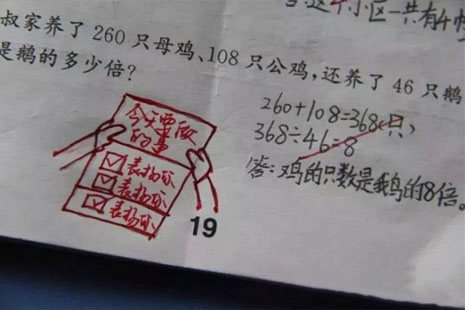 这个小区一共有4幢
叔家养了 260 只母鸡、108 只公鸡，还养了 46 只鹅
是鹅的多少倍？
260+108=368(只)
368÷46=8
答：鸡的只数是鹅的8倍。
今天要做
的事
表扬你
表扬你
表扬你
19